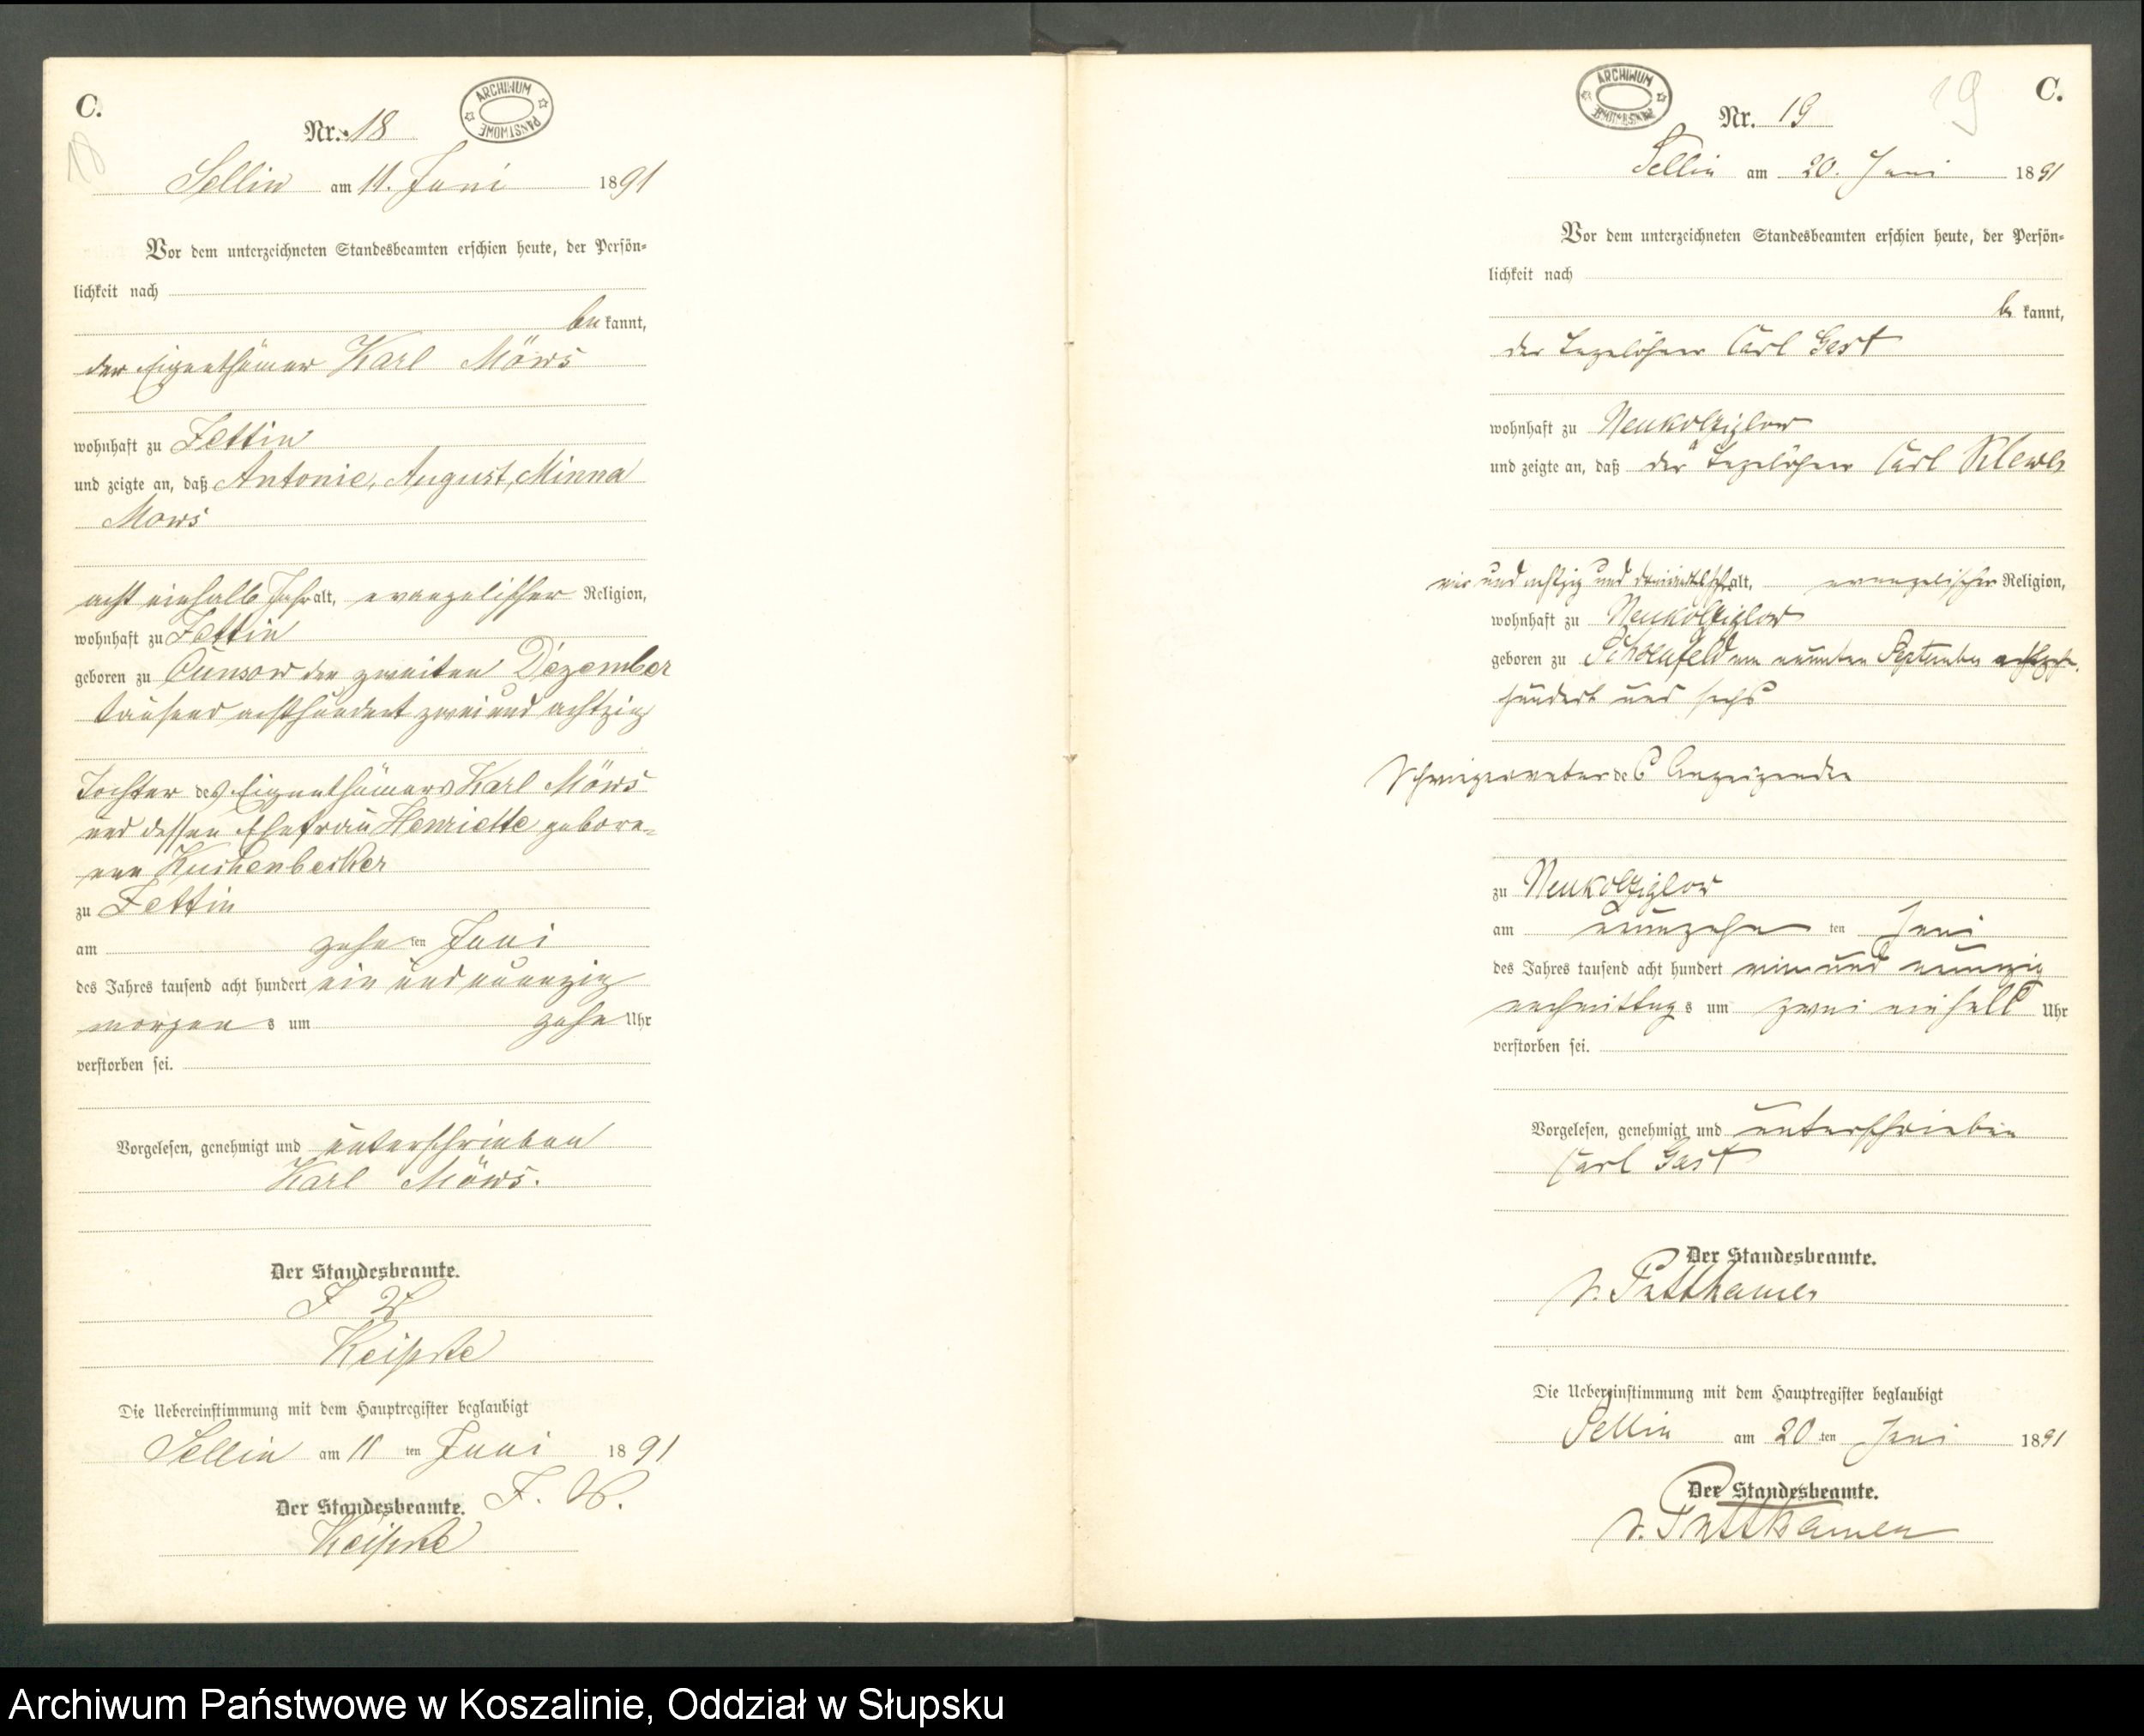 C.
ARCHIWUM PAŃSTWOWE
Nr. 18
18
Sellin am 11. Juni 1891
Vor dem unterzeichneten Standesbeamten erschien heute, der Persön-
lichkeit nach
bekannt,
der Eigenthümer Karl Möws
wohnhaft zu Zettin
und zeigte an, daß Antonie, August, Minna
Mows
acht einhalb Jahr alt, evangelischer Religion,
wohnhaft zu Zettin
geboren zu Cunsow den zweiten Dezember
tausend achthundert zwei und achtzig
Tochter des Eigenthümers Karl Möws
und dessen Ehefrau Henriette gebore-
nen Kuchenbecker
zu Zettin
am zehn ten Juni
des Jahres tausend acht hundert ein und neunzig
morgens um zehn Uhr
verstorben sei.
Vorgelesen, genehmigt und unterschrieben
Karl Möws.
Der Standesbeamte.
Die Uebereinstimmung mit dem Hauptregister beglaubigt
Sellin am 11 ten Juni 1891
Der Standesbeamte.
ARCHIWUM PAŃSTWOWE
19
C.
Nr. 19
Sellin am 20. Juni 1891
Vor dem unterzeichneten Standesbeamten erschien heute, der Persön-
lichkeit nach
be kannt,
der Tagelöhner Carl Gast
wohnhaft zu Neukolziglow
und zeigte an, daß der Tagelöhner Carl
vier und achtzig und alt, evangelischer Religion,
wohnhaft zu Neukolziglow
geboren zu Schoenfeld am neunten September achtzehn
hundert und sechs
Schwiegervater des Anzeigenden
zu Neukolziglow
am neunzehn ten Juni
des Jahres tausend acht hundert ein und neunzig
nachmittags um zwei einhalb Uhr
verstorben sei.
Vorgelesen, genehmigt und unterschrieben
Carl Gast
Der Standesbeamte.
v. Puttkamer
Die Uebereinstimmung mit dem Hauptregister beglaubigt
Sellin am 20 ten Juni 1891
Der Standesbeamte.
v. Puttkamer
Archiwum Państwowe w Koszalinie, Oddział w Słupsku